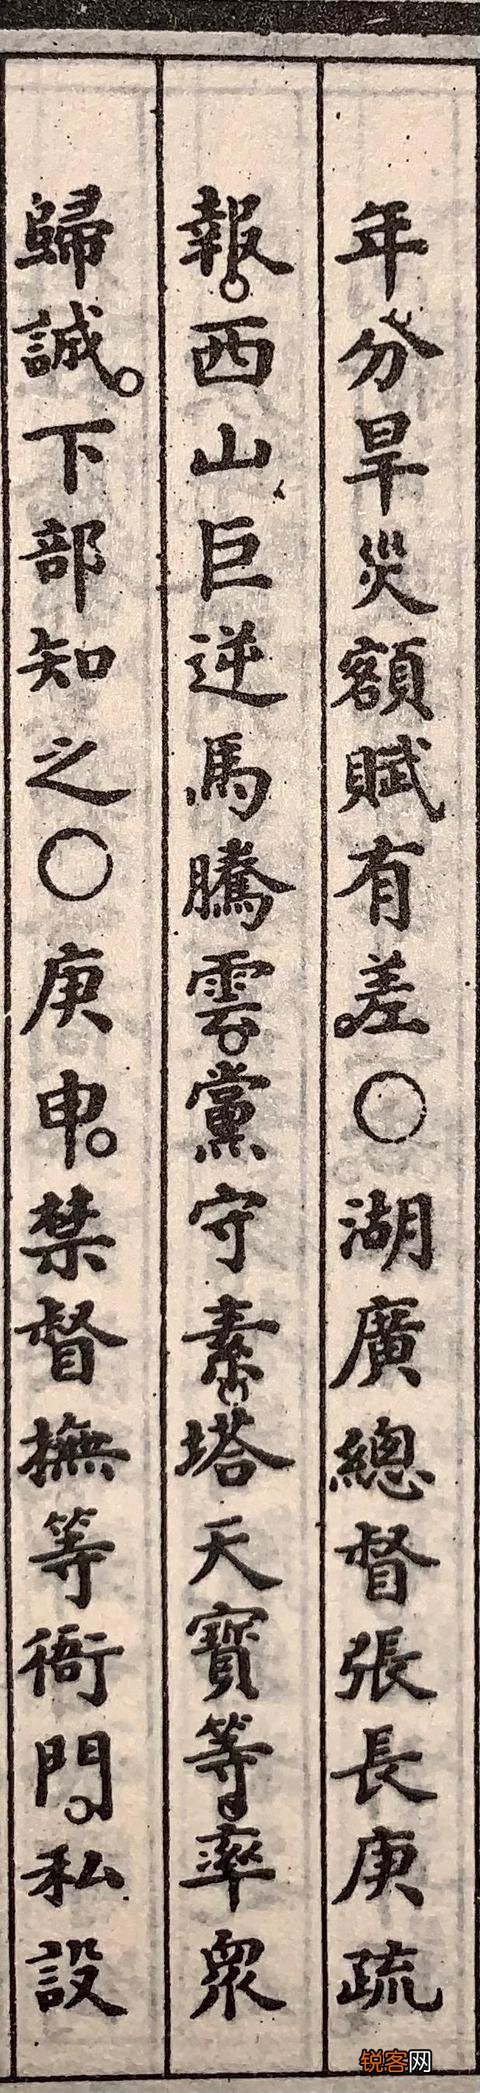 年分旱災額賦有差。〇湖廣總督張長庚疏
報。西山巨逆馬騰雲。黨守素。塔天寶等。率衆
歸誠。下部知之〇庚申。禁督撫等衙門。私設
锐客网